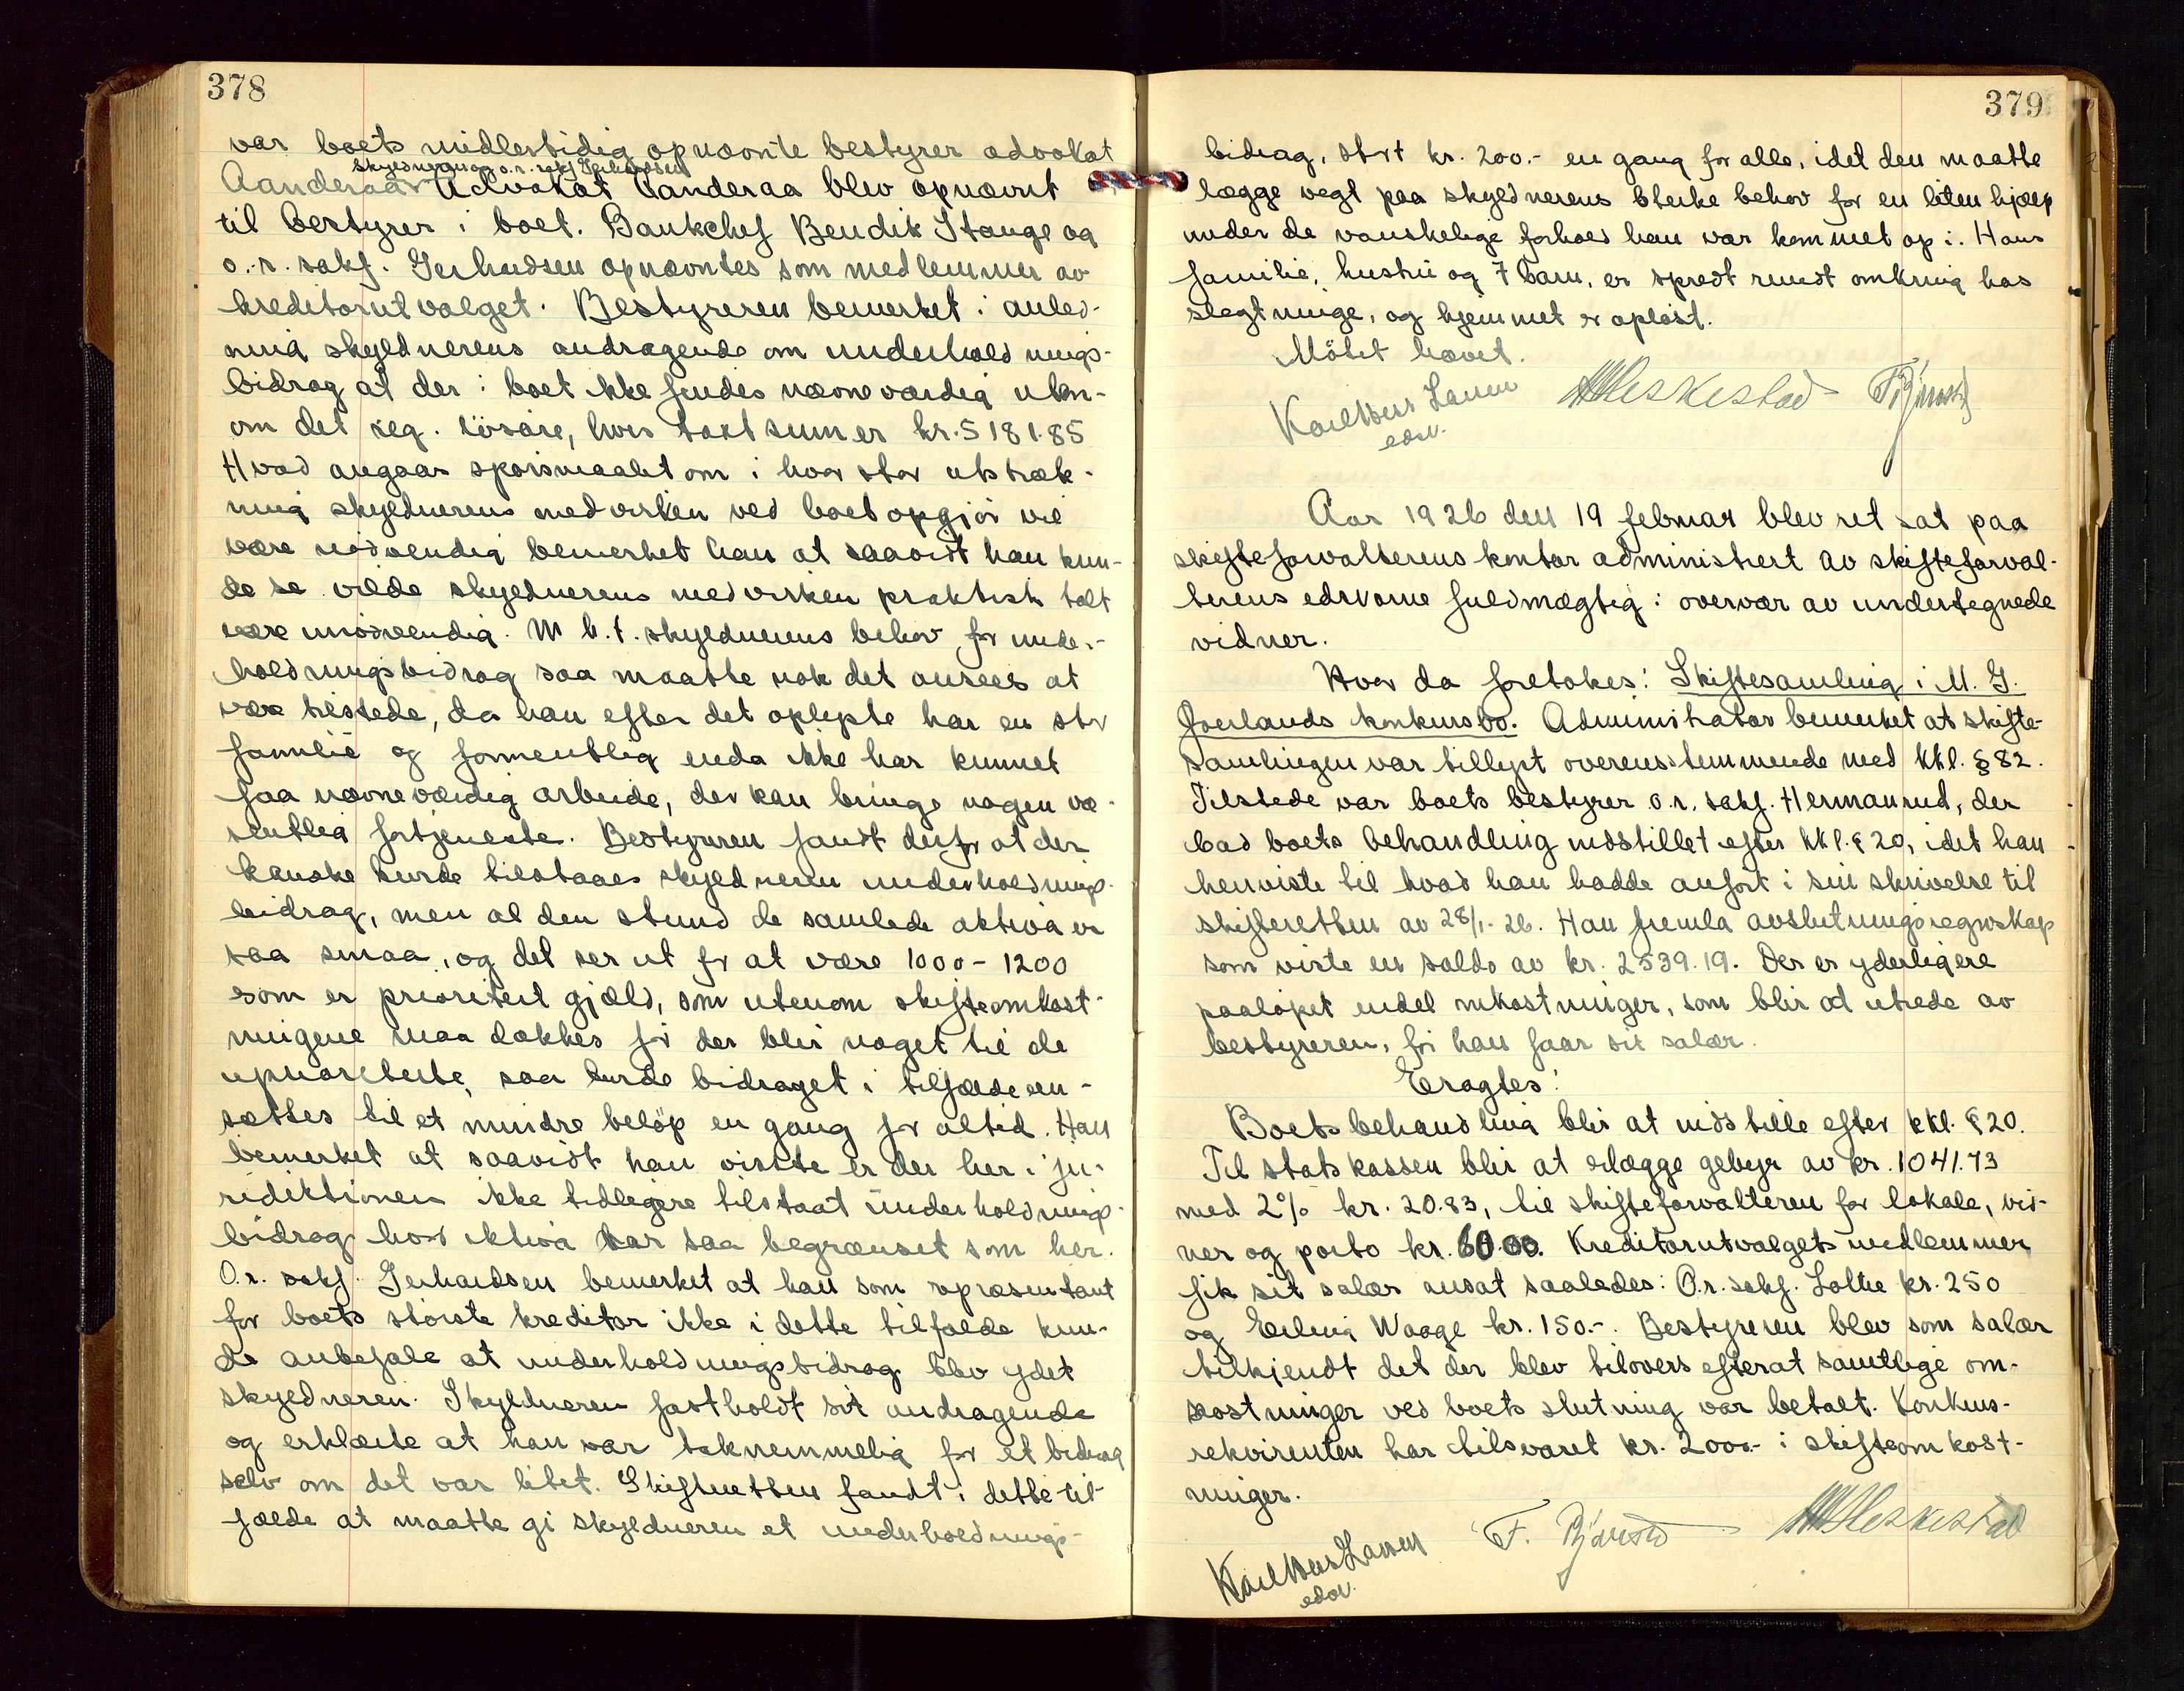 378
var boets midlertidig opnævnte bestyrer advokat
skyldneren og o.r. sakf Gerhardsen
Aanderaa. Advokat Aanderaa blev opnævnt
til bestyrer i boet. Bankchef Bendik Stange og
o.-r. sakf. Gerhardsen opnævntes som medlemmer av
kreditorutvalget. Bestyreren bemerket i anled-
ning skyldnerens andragende om underholdnings-
bidrag at der i boet ikke fendes nævneværdig uten-
om det reg. lösöre, hvis takstsum er kr. 5181.85
Hvad angaar spörsmaalet om i hvor stor utstræk-
ning skyldnerens medvirken ved boets opgjör vil
være nödvendig bemerket han at saavidt han kun-
de se vilde skyldnerens medvirken praktisk talt
være unödvendig. M.h.t. skyldnerens behov for under-
holdningsbidrag saa maatte nok det ansees at
være tilstede, da han efter det oplyste har en stor
familie og formentlig enda ikke har kunnet
faa nævneværdig arbeide, der kan bringe nogen væ-
sentlig fortjeneste. Bestyreren fandt derfor at der
kanske burde tilstaaes skyldneren underholdnings-
bidrag, men al den stund de samlede aktiva er
saa smaa, og det ser ut for at være 1000 - 1200
som er prioritert gjæld, som utenom skifteomkost-
ningene maa dækkes för der blir noget til de
upriorterte, saa burde bidraget i tilfælde an-
sættes til et mindre belöp en gang for altid. Han
bemerket at saavidt han visste er der her i ju-
ridiktionen ikke tidligere tilstaat underholdnings-
bidrag hvor aktiva var saa begrænset som her.
O.r. sakf. Gerhardsen bemerket at han som repræsentant
for boets störste kreditor ikke i dette tilfælde kun-
de anbefale at underholdningsbidrag blev ydet
skyldneren. Skyldneren fastholdt sit andragende
og erklærte at han var taknemmelig for et bidrag
selv om det var litet. Skifteretten fandt i dette til-
fælde at maatte gi skyldneren et underholdnings-
379
bidrag, stort kr. 200.- en gang for alle, idet den maatte
lægge vegt paa skyldnerens sterke behov for en liten hjælp
under de vanskelige forhold han var kommet op i. Hans
familie, hustru og 7 barn, er spredt rundt omkring hos
slegtninge, og hjemmet er opløst.
Mötet hævet.
Karl Larsen
edsv.
Heskestad
Aar 1926 den 19 februar blev ret sat paa
skifteforvalterens kontor administrert av skifteforval-
terens edsvorne fuldmægtig i overvær av undertegnede
vidner.
Hvor da foretokes: Skiftesamling i M. G.
Joerlands konkursbo. Administrator bemerket at skifte-
samlingen var tillyst overensstemmende med kkl. § 82.
Tilstede var boets bestyrer o.r. sakf. Hermanrud, der
bad boets behandling indstillet efter kkl. § 20, idet han
henviste til hvad han hadde anfört i sin skrivelse til
skifteretten av 28/1-26. Han fremla avslutningsregnskap
som viste en saldo av kr. 2539.19. Der er yderligere
paalöpet endel omkostninger, som blir at utrede av
bestyreren, för han faar sit salær.
Eragtes:
Boets behandling blir at indstille efter kkl. § 20.
Til statskassen blir at erlægge gebyr av kr. 1041.73
med 2% kr. 20.83, til skifteforvalteren for lokale, vid-
ner og porto kr. 60.00. Kreditorutvalgets medlemmer
fik sit salær ansat saaledes: O.r. sakf. Lothe kr. 250
og Erling Waage kr. 150.-. Bestyreren blev som salær
tilkjendt det der blev tilovers efterat samtlige om-
kostninger ved boets slutning var betalt. Konkurs-
rekvirenten har tilsvaret kr. 2000.- i skifteomkost-
ninger.
Karl Larsen
edsv.
Heskestad